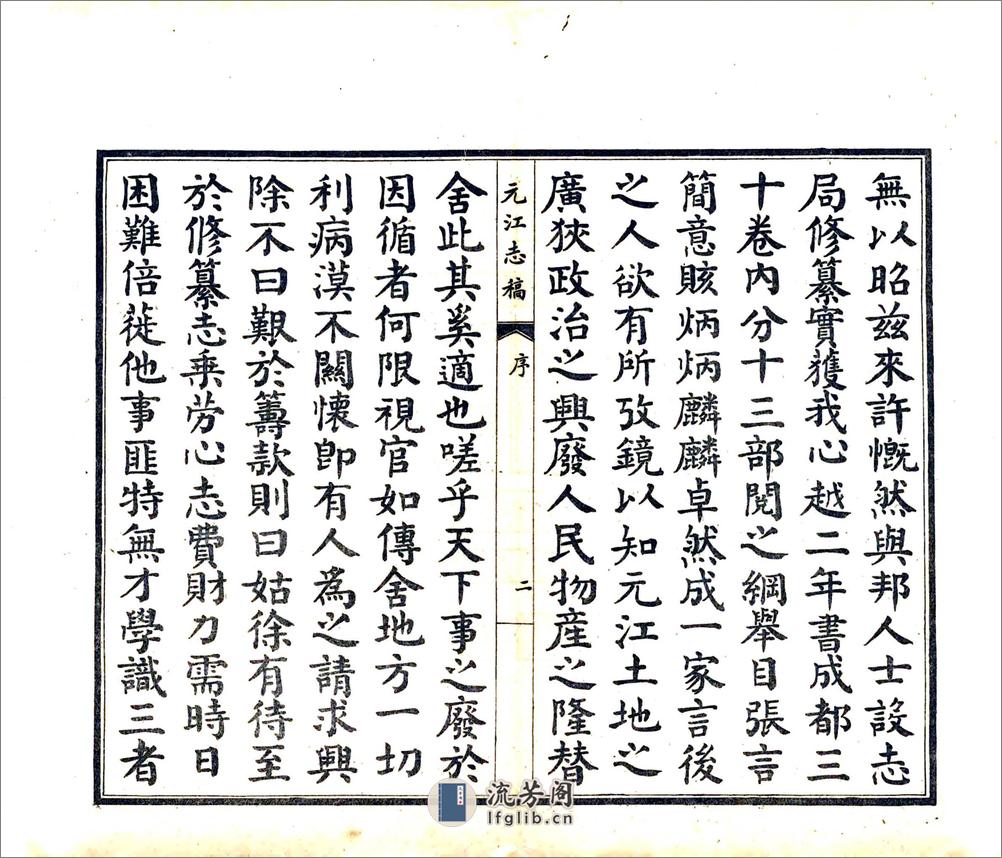 無以昭茲來許慨然與邦人士設志
局修纂實獲我心越二年書成都三
十卷內分十三部閱之綱舉目張言
簡意賅炳炳麟麟卓然成一家言後
之人欲有所攷鏡以知元江土地之
廣狹政治之興廢人民物產之隆替
元江志稿
序
二
舍此其奚適也嗟乎天下事之廢於
因循者何限視官如傳舍地方一切
利病漠不關懷即有人為之請求興
除不曰艱於籌款則曰姑徐有待至
於修纂志乘勞心志費財力需時日
困難倍蓰他事匪特無才學識三者
流芳阁
lfglib.cn